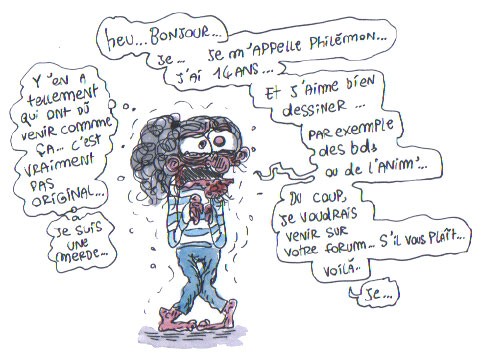 heu... BONJOUR...
Je... Je m'APPELLE Philémon...
J'AI 14 ANS...
ET J'AIME biEN
dESSINER...
PAR EXEMPLE
dES bds
ou de l'ANIM'...
DU COUP,
JE VOUDRAIS
VENIR SUR
VOTRE FORUM... S'IL VOUS PLAÎT...
VOILÀ..
Je...
Y'EN A
TELLEMENT
QUI ONT DÛ
VENIR COMME
ÇA... C'EST
VRAIMENT
PAS
ORIGINAL...
JE SUIS
UNE
MERDE...